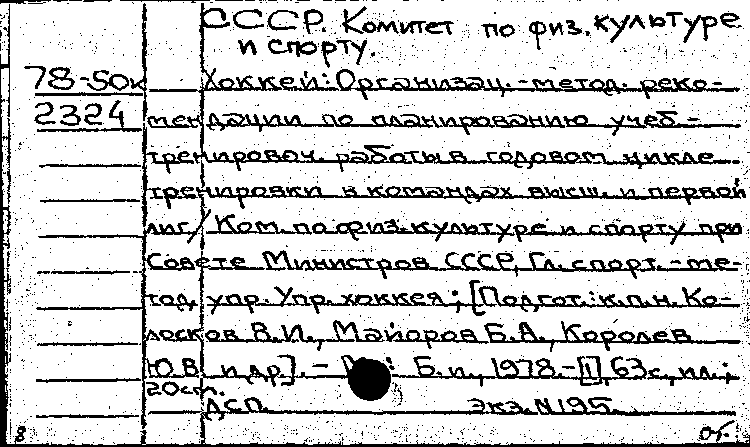 СССР. Комитет по физ. культуре
и спорту.
78-50к Хоккей: Организац.-метод. реко-
2324 мендации по планированию учеб.-
тренировоч. работы в годовом цикле
тренировки в командах высш. и первой
лиг/Ком. по физ. культуре и спорту при
Совете Министров СССР, Гл. спорт.-ме-
тод. упр. Упр. хоккея; [Подгот.: к.п.н. Ко-
лосков В.И., Майоров Б.А., Королев
Ю.В. и др]. - : Б.и., 1978.-[1], 63с., ил.;
20см.
ДСП. экз. N195.
8 об.